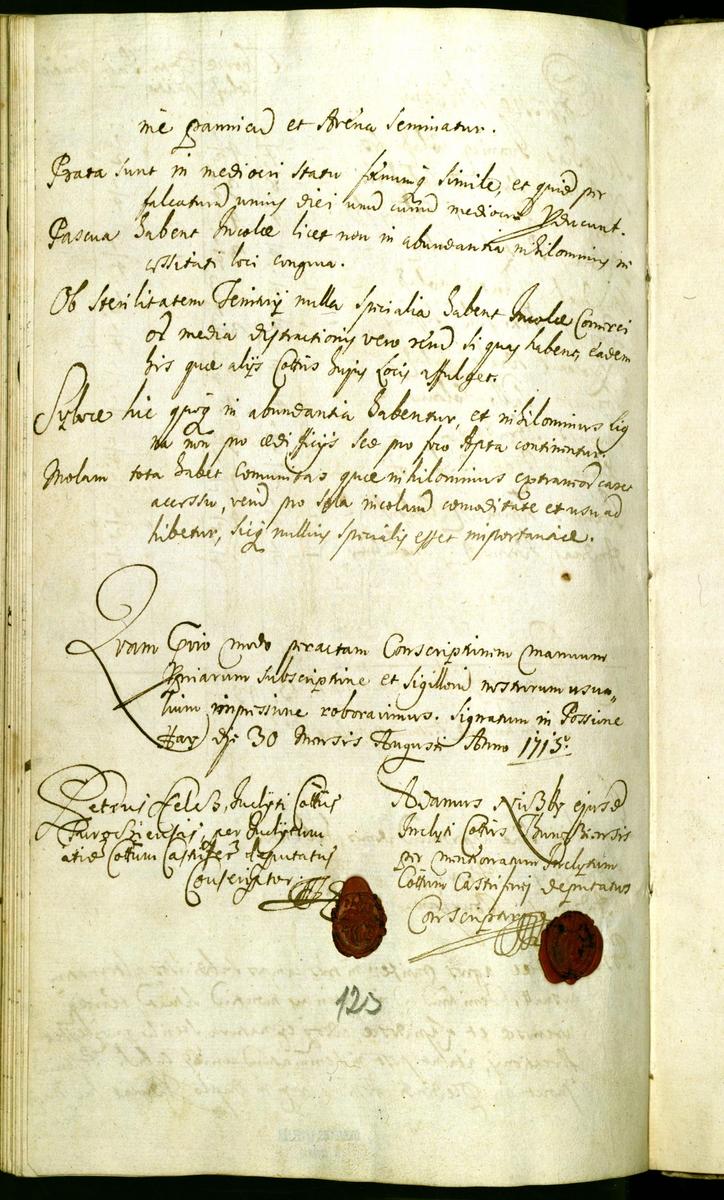 me pannicu et Avena seminatur.
Prata sunt in mediocri statu fænumq simile, et quid per
falcaturā unius diei unū currū mediocrē producunt.
Pascua habent Incolæ licet non in abundantia nihilominus ne
cessitati loci congrua.
Ob sterilitatem Territorij nulla specialia habent Incolæ Comerci
media distractionis vero rerū si quas habent, eadem
his quæ alijs Cottus hujus Locis affulget.
Sylvæ hic quoq in abundantia habentur, et nihilominus lig
na non pro ædificijs sed pro foco apta continentur.
Molam tota habet Comunitas quæ nihilominus extraneorū caret
accessu, verū pro sola incolarū comoditate et usu ad
hibetur, sicq nullius specialis esset importantiæ.
Quam modo peractam Conscriptionem manuum
subscriptione et sigillorū nostrorum usua„
lium impressione roboravimus. Signatum in Possione
die 30 Mensis Augusti Anno 1715.
Petrus Inclyti Cottus
per Inclytum
Cottum deputatus
Conscriptor
Adamus ejusd
Inclyti Cottus
per mentionatum Inclytum
Cottum Castriferrij deputatus
Conscriptor
123